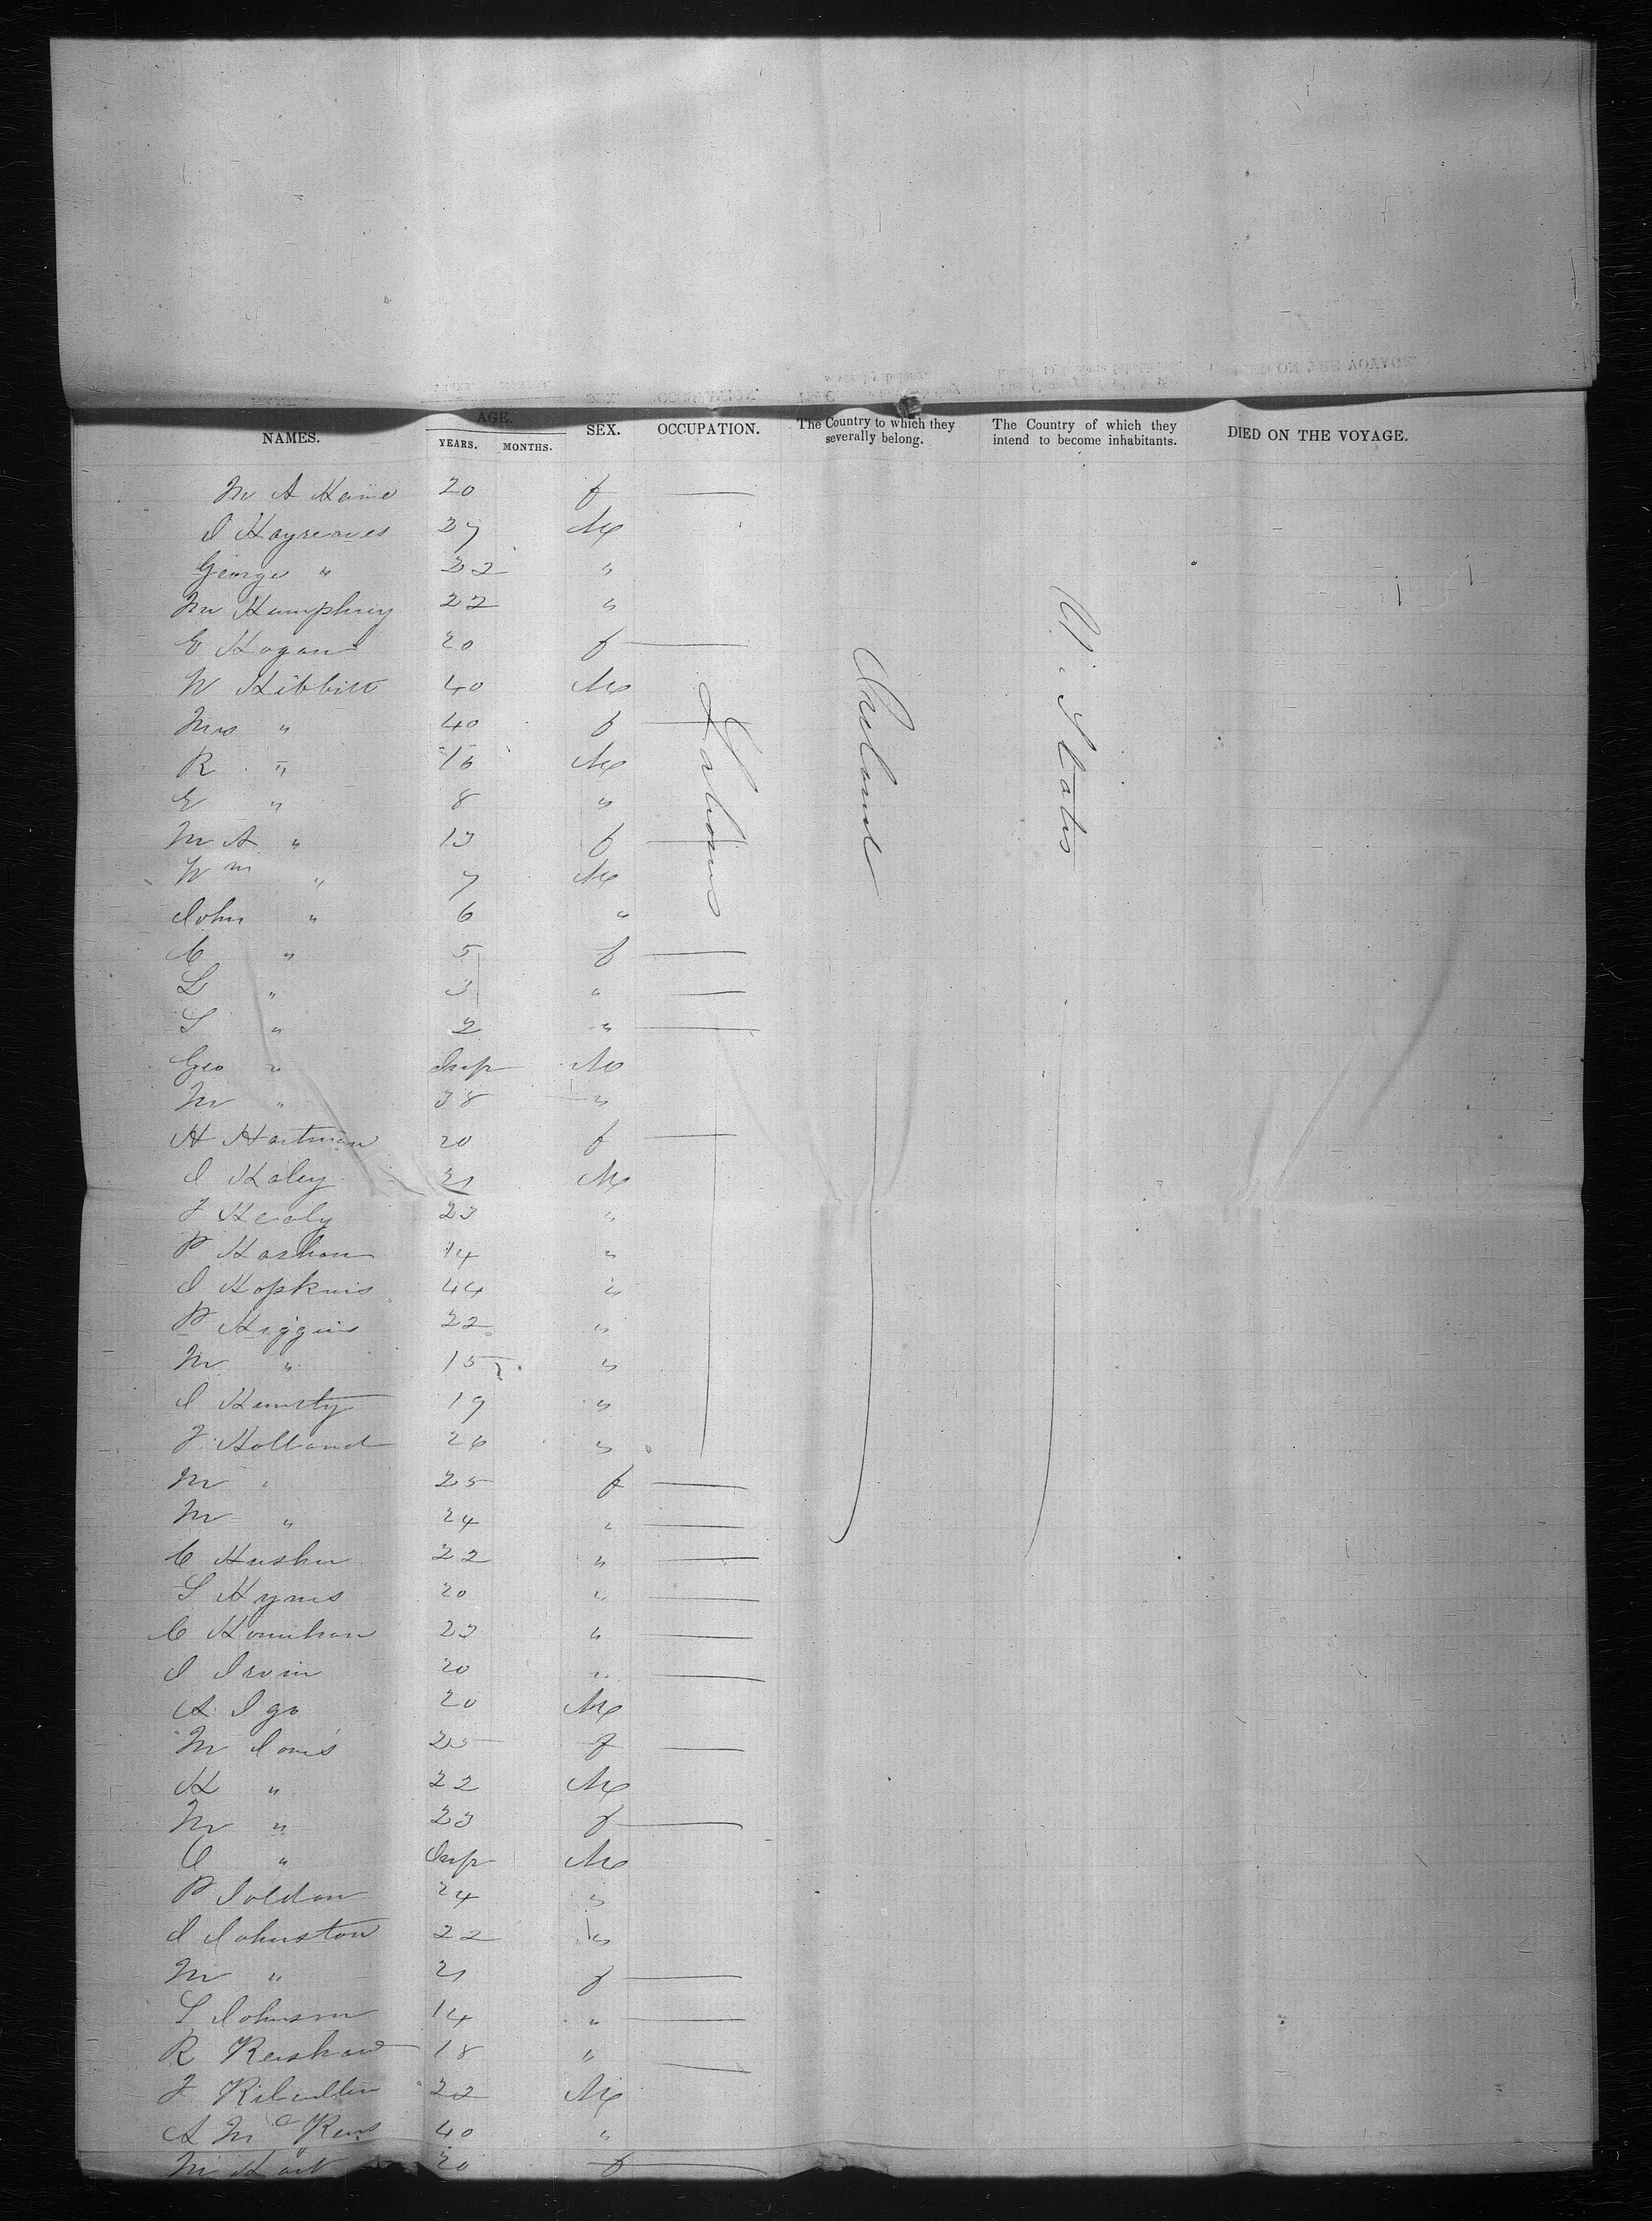 NAMES. AGE. YEARS. MONTHS. SEX. OCCUPATION. The Country to which they severally belong. The Country of which they intend to become inhabitants. DIED ON THE VOYAGE.
M A 20 f —
J Hargreaves 27 M
George " 22 "
M Humphrey 22 "
E Hogan 20 f —
W Hibbitt 40 M
Mrs " 40 f —
R " 16 M
E " 8 "
M A " 13 f —
Wm " 7 M
John " 6 "
C " 5 f —
L " 3 " —
S " 2 " —
Geo " Inf M
M " 38 "
H Hartman 20 f —
J Haley 21 M
J Healy 23 "
P 14 "
J Hopkins 44 "
P Higgins 22 "
M " 15 "
J 19 "
J Holland 26 "
M " 25 f —
M " 24 " —
C 22 " —
S Hyms 20 " —
C 23 " —
J Irvin 20 " —
A Igo 20 M
M 25 f —
H " 22 M
M " 23 f —
C " Inf M
P 24 "
J Johnston 22 "
M " 21 f —
S Johnson 14 " —
R Kershaw 18 " —
J 22 M
A Mc 40 "
M 20 f —
Labourers
Ireland
U. States